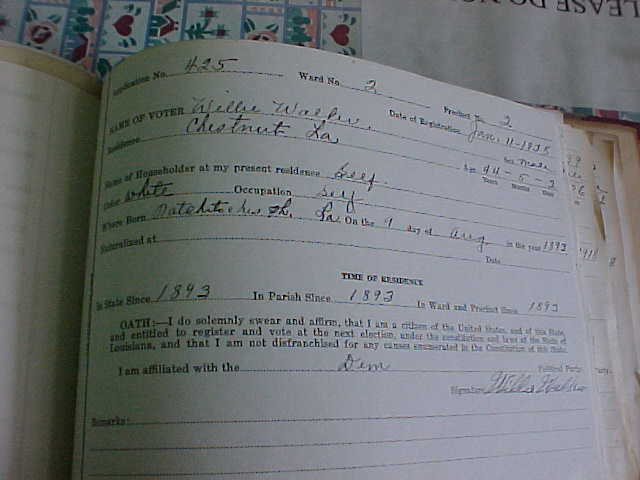 LEASE DO NO
Application No. 425 Ward No. 2 Precinct 2
NAME OF VOTER Willie Walker. Date of Registration Jan. 11-1938
Residence Chestnut La Sex male
Age 44-5-2
Years Months Days
Name of Householder at my present residence Self
Color White Occupation Self
Where Born Natchitoches Ph. La. On the 9 day of Aug in the year 1893
Naturalized at Date
TIME OF RESIDENCE
In State Since 1893 In Parish Since 1893 In Ward and Precinct Since 1893
OATH:—I do solemnly swear and affirm, that I am a citizen of the United States, and of this State,
and entitled to register and vote at the next election, under the constitution and laws of the State of
Louisiana, and that I am not disfranchised for any causes enumerated in the Constitution of this State.
I am affiliated with the Dem Political Party
Signature Willie Walker
Remarks: